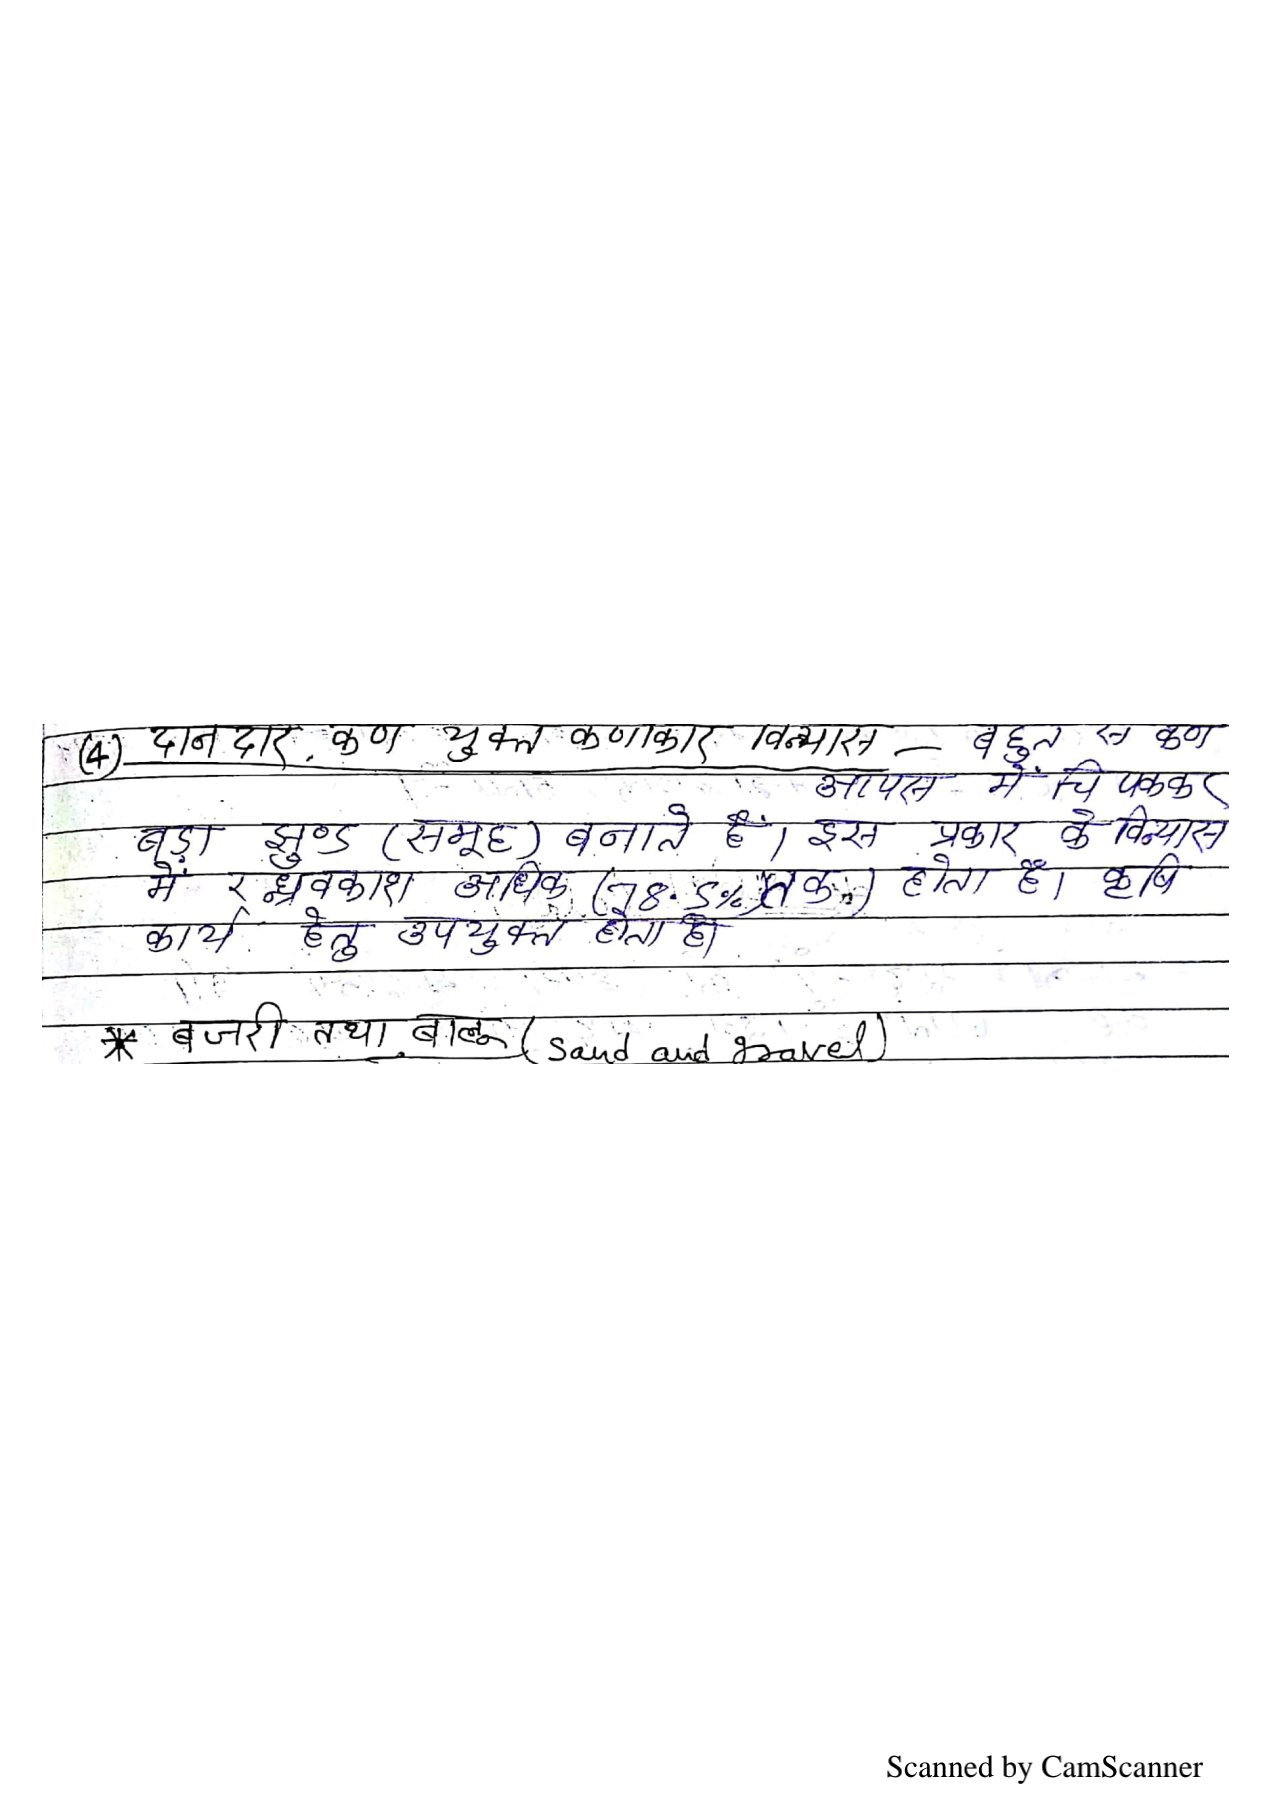 (4) दानदार कण युक्त कणाकार विन्यास — बहुत स कण
आपस में चिपककर
बड़ा झुण्ड (समूह) बनाते हैं। इस प्रकार के विन्यास
में रन्ध्रवकाश अधिक (78.5% तक) होता है। कृषि
कार्य हेतु उपयुक्त होता है।
* बजरी तथा बालू (Sand and gravel)
Scanned by CamScanner